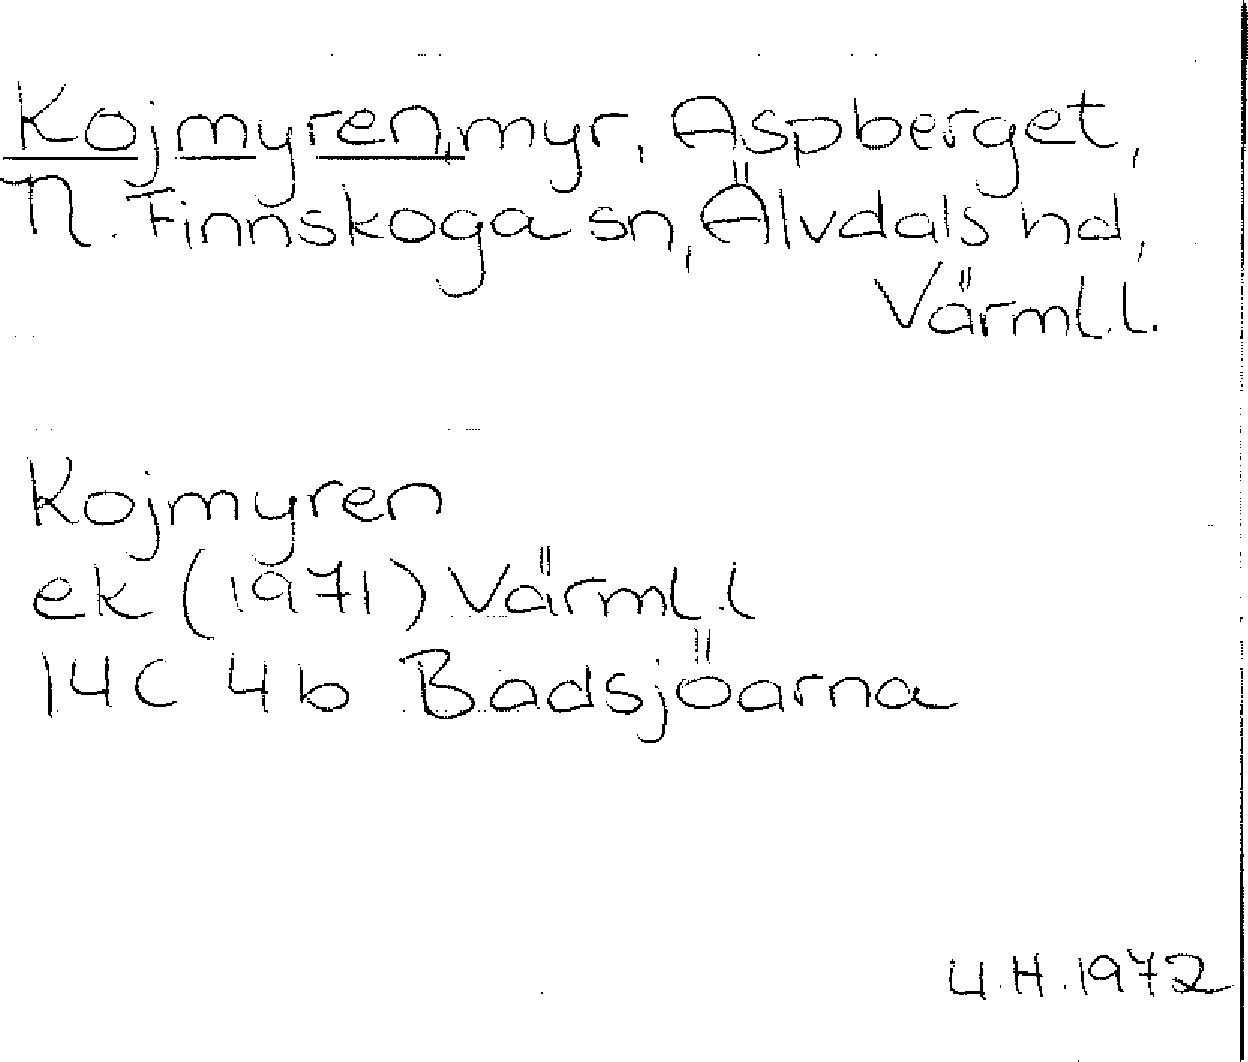 Kojmyren, myr, Aspberget,
N. Finnskoga sn, Älvdals hd,
Värml.l.
Kojmyren
ek (1971) Värml.l
14C 4b Badsjöarna
U.H.1972